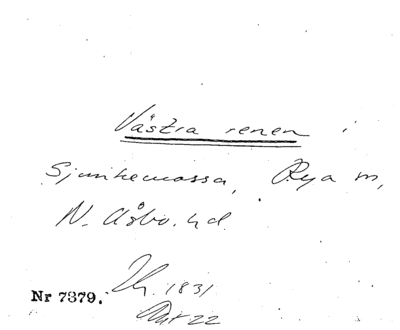 Västra renen i
Sjunkemossa, Rya m,
N. Åsbo hd.
1831
Nr 7379.
22